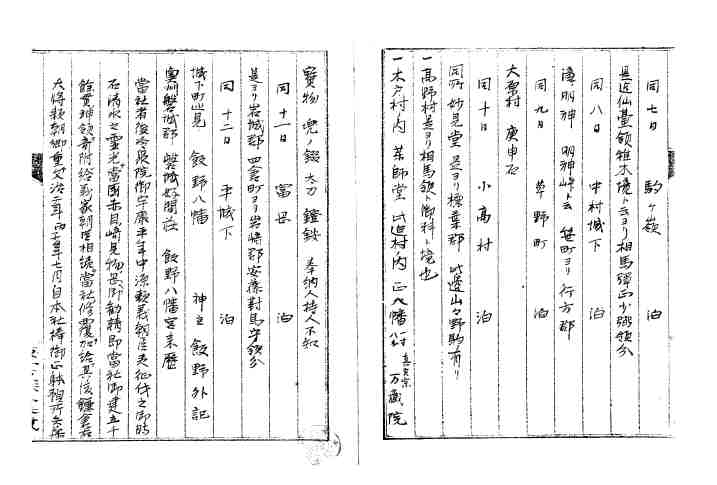 同七日 駒ヶ嶺 泊
是迄仙臺領椎木境ト云ヨリ相馬彈正少弼領分
同八日 中村城下 泊
明神 明神峠ト云 町ヨリ行方郡
同九日 草野町 泊
大原村 庚申石
同十日 小高村 泊
同所妙見堂 是ヨリ標葉郡 此邊山々野駒有リ
一高野村是ヨリ相馬領ト御料ト境也
一木戸村ノ内 薬師堂 此辺村ノ内 正八幡 一村 真言宗 万蔵院
寶物 兜ノ錣 太刀 鐙 奉納人持人不知
同十一日 富岡 泊
是ヨリ岩城郡 四倉町ヨリ岩崎郡安藤對馬守領分
同十二日 平城下 泊
城下町近見 飯野八幡 神主 飯野外記
奥州磐城郡 磐城好間荘 飯野八幡宮来歴
當社者後冷泉院御宇康平年中源頼義朝臣夷征伐之御時
石清水之霊光當國赤目崎見物岡御勧請即當社御建立千
餘貫神領寄附給義家朝臣相續當社修覆加給其後鎌倉右
大将頼朝卿重文治二年丙午年七月自本社捧御正躰